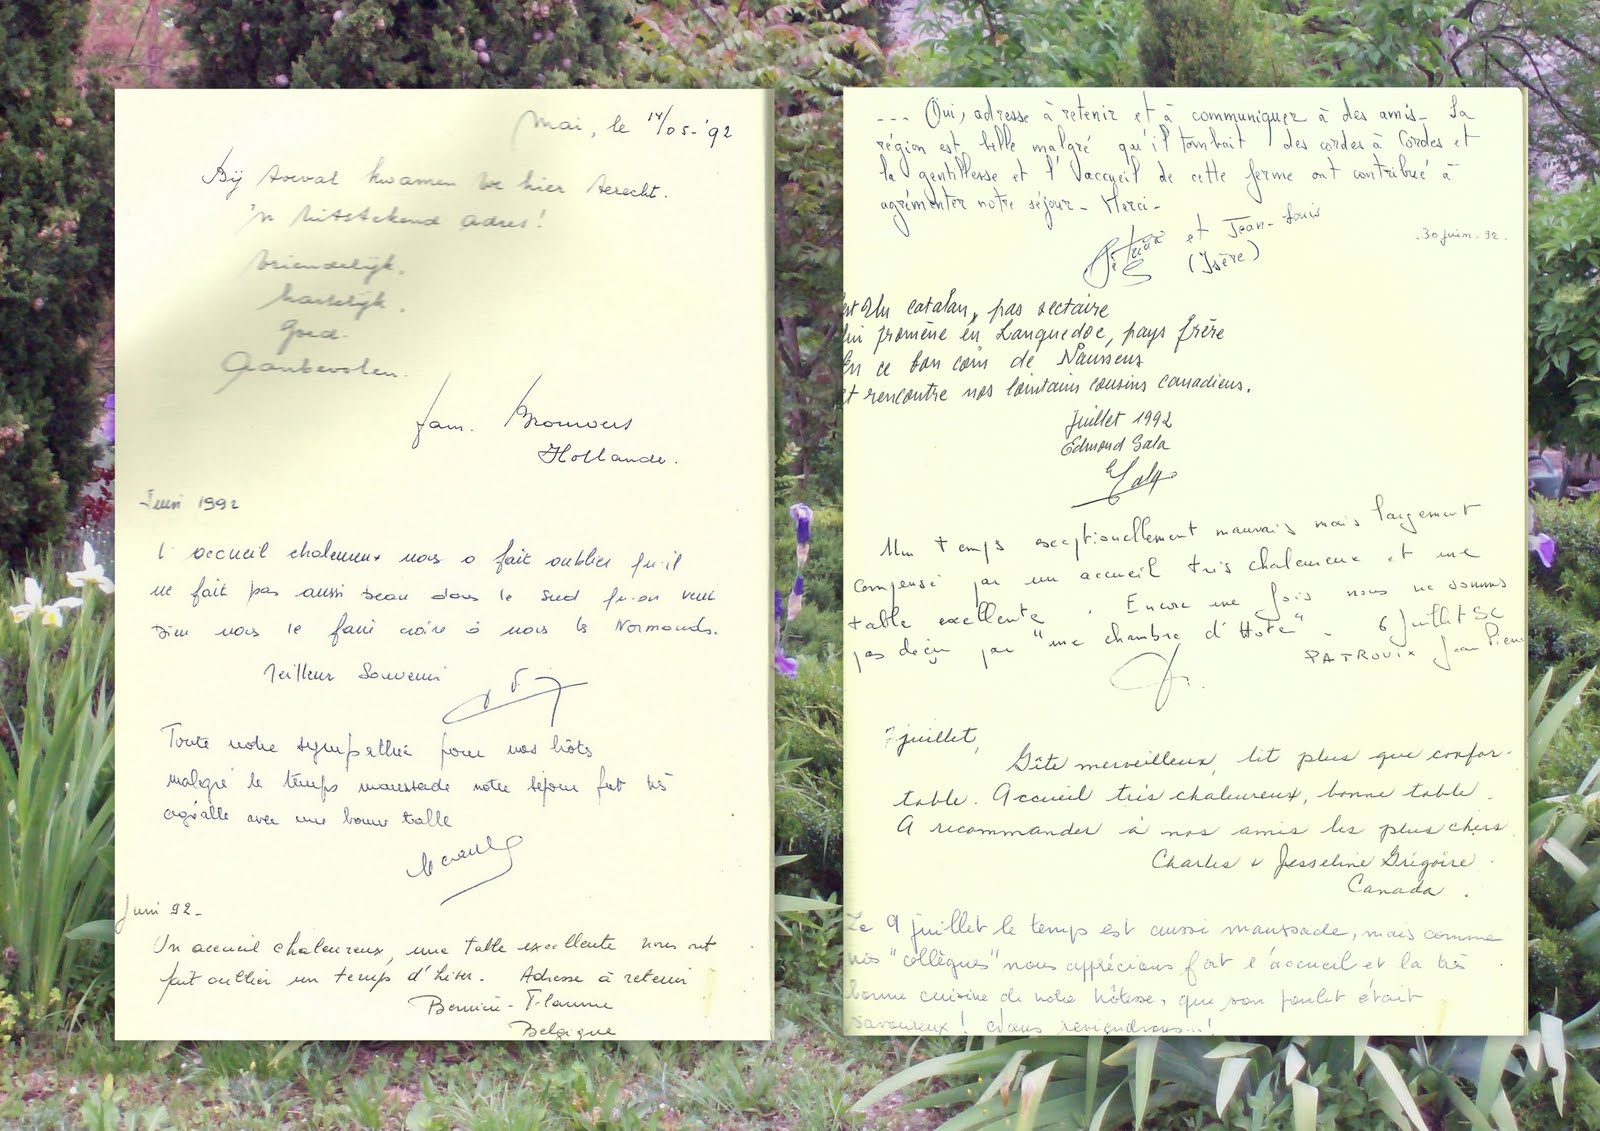 Mai, le 14/05-'92
Bij toeval kwamen we hier terecht.
'n uitstekend adres!
Vriendelijk.
hartelijk.
Goed.
Aanbevolen.
fam. Brouwers
Hollande.
Juin 1992
L'accueil chaleureux nous a fait oublier qu'il
ne fait pas aussi beau dans le Sud qu'on veut
bien nous le faire croire à nous les Normands.
Meilleur Souvenir
Toute notre sympathie pour nos hôts
malgré le temps maussade notre séjour fut très
agréable avec une bonne table
Juin 92-
Un accueil chaleureux, une table excellente nous ont
fait oublier un temps d'hiver. Adresse à retenir
Belgique
--- Oui, adresse à retenir et à communiquer à des amis- La
région est belle malgré qu'il tombait des cordes à Cordes et
la gentillesse et l'accueil de cette ferme ont contribué à
agrémenter notre séjour- Merci-
et Jean-Louis
(Isère)
30 juin-92.
Un catalan, pas sectaire
promène en Languedoc, pays frère
En ce bon coin de Naussens
et rencontre nos lointains cousins canadiens.
Juillet 1992
Edmond Gala
E Gala
Un temps exceptionellement mauvais mais largement
compensé par un accueil très chaleureux et une
table excellente. Encore une fois nous ne sommes
pas déçu par "une chambre d'Hote"- 6 Juillet 92
PATROUIX Jean Pierre
7 juillet,
Gîte merveilleux, lit plus que confor-
table. Accueil très chaleureux, bonne table.
A recommander à nos amis les plus chers
Charles & Jesseline Grégoire.
Canada.
Le 9 juillet le temps est aussi maussade, mais comme
nos "collègues" nous apprécions fort l'accueil et la très
bonne cuisine de notre hôtesse, que son poulet était
savoureux! Nous reviendrons...!